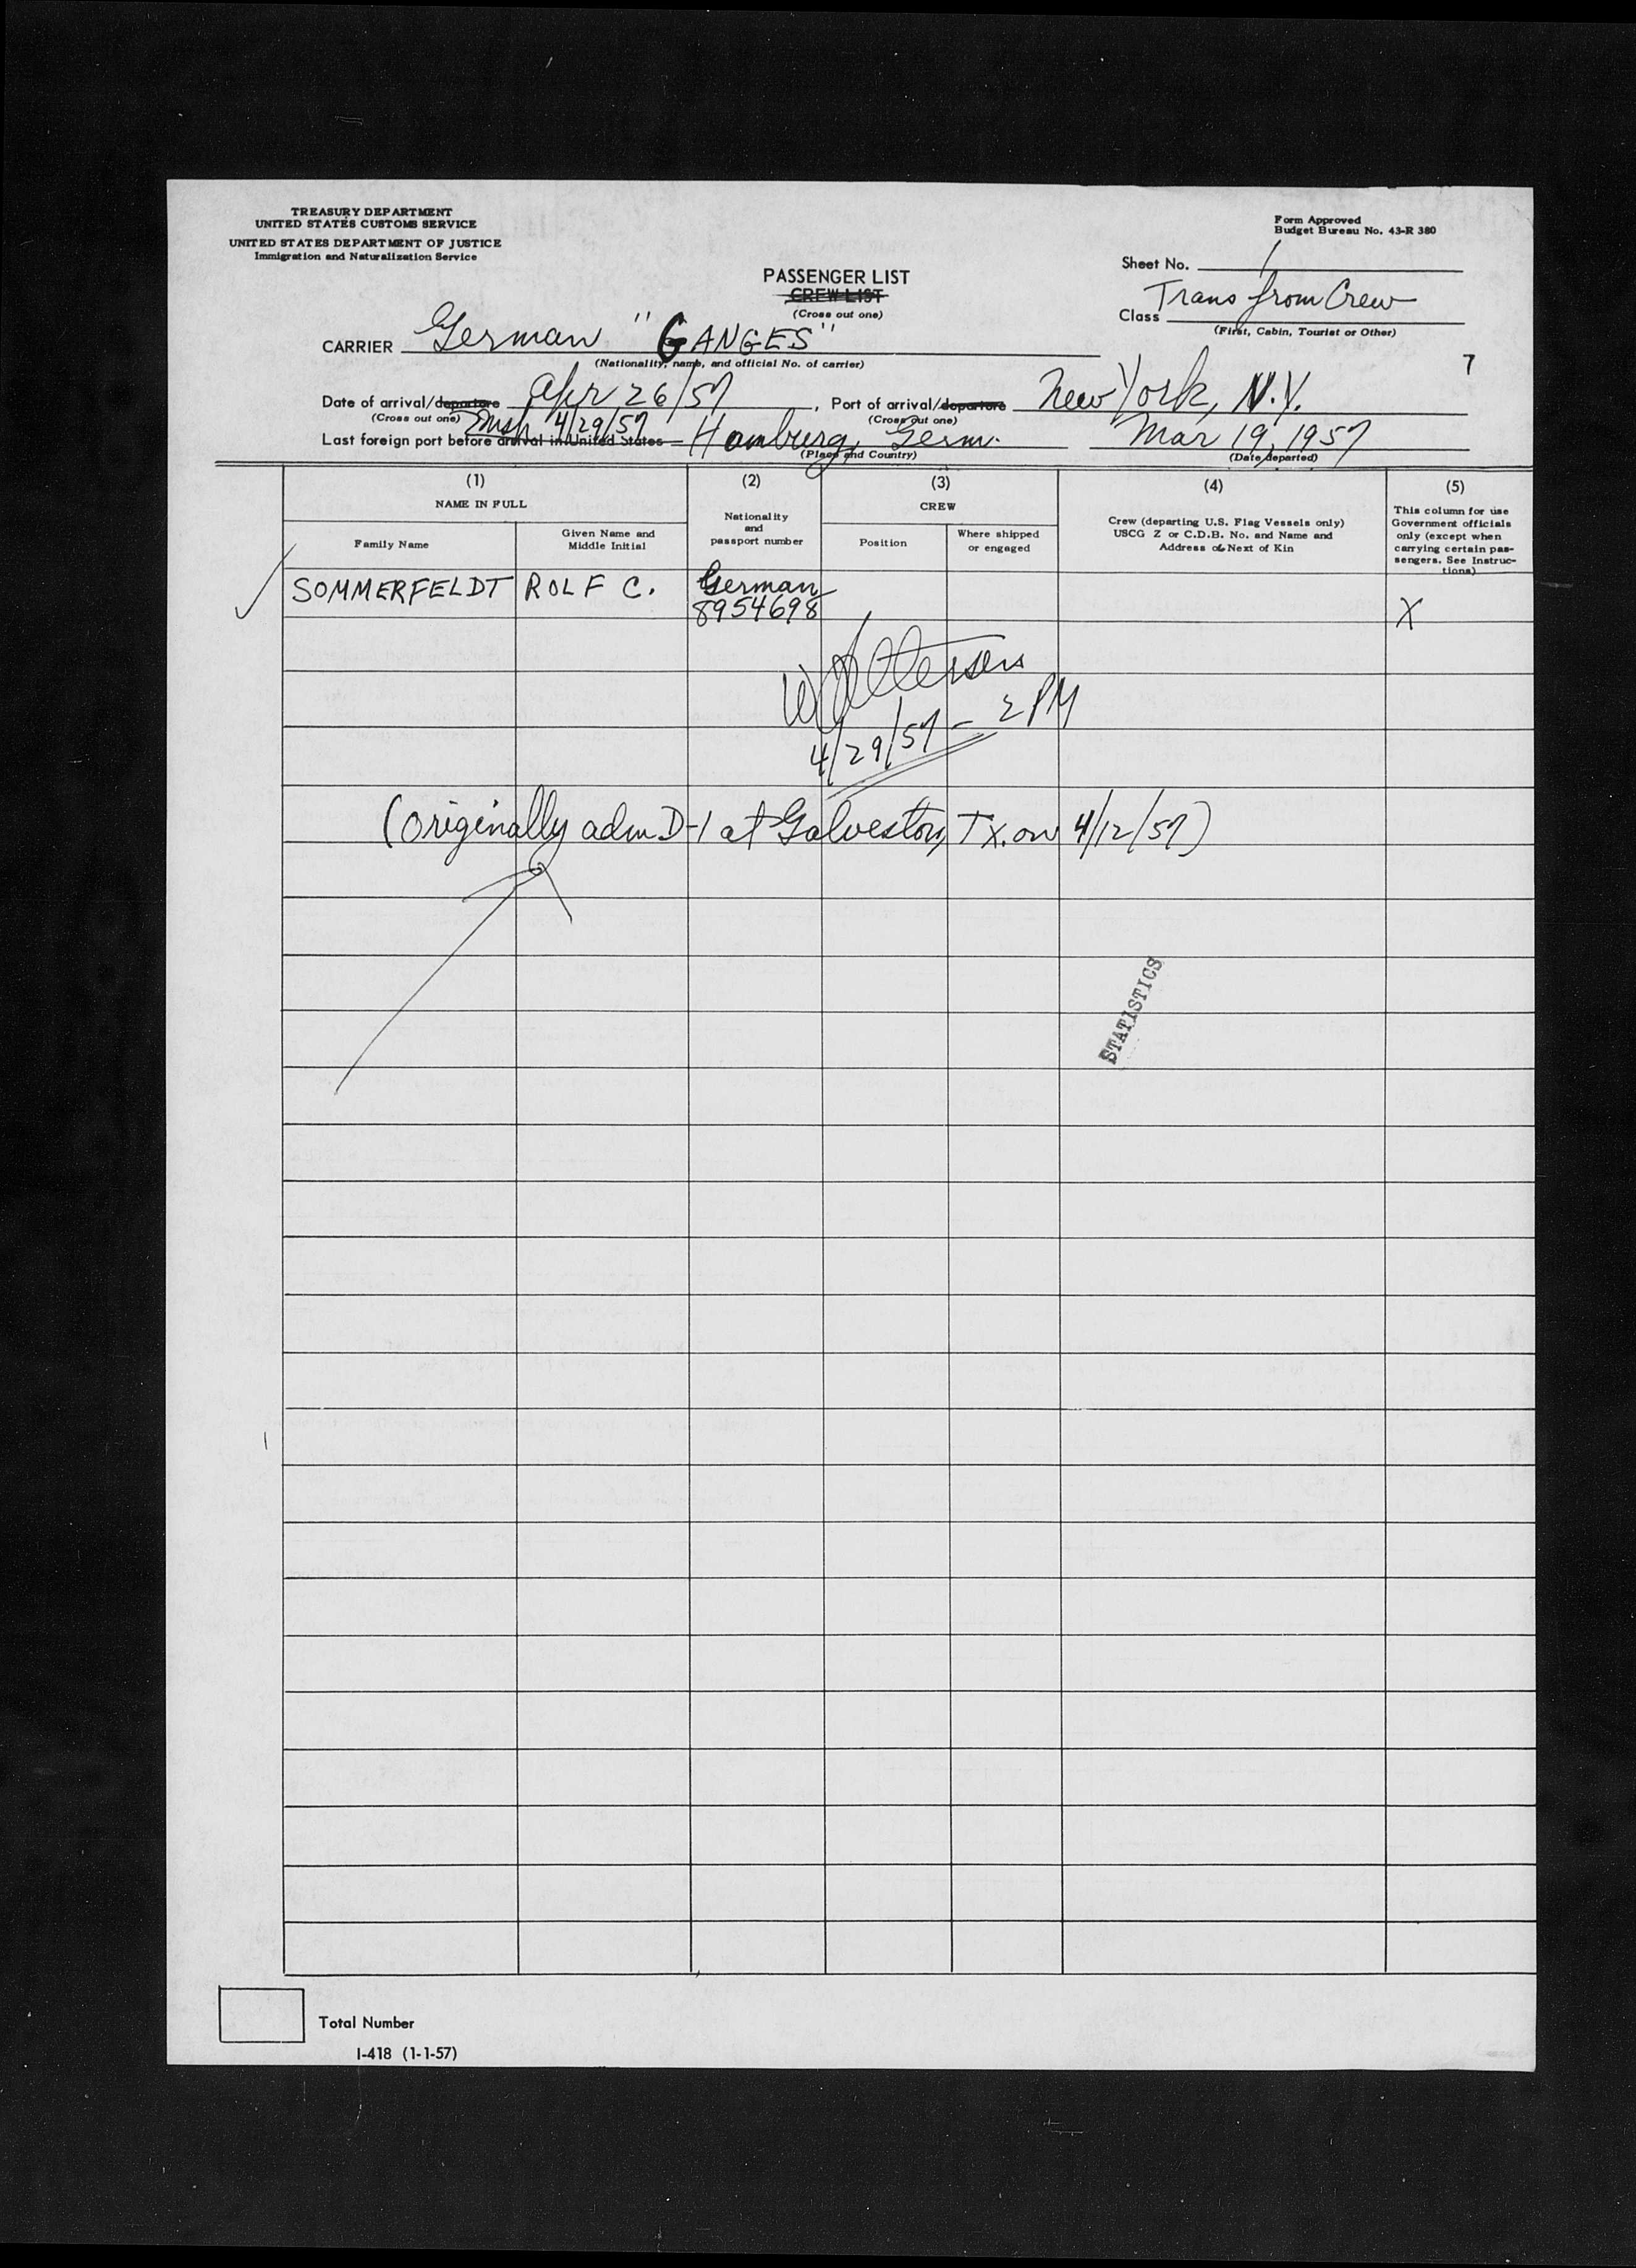 TREASURY DEPARTMENT
UNITED STATES CUSTOMS SERVICE
UNITED STATES DEPARTMENT OF JUSTICE
Immigration and Naturalization Service
Form Approved
Budget Bureau No. 43-R 380
Sheet No. 1
PASSENGER LIST
CREW LIST
(Cross out one)
Class Trans from Crew
(First, Cabin, Tourist or Other)
CARRIER German "GANGES"
(Nationality, name, and official No. of carrier)
7
Date of arrival/departure Apr 26/57, Port of arrival/departure New York, N.Y.
(Cross out one) 4/29/57 (Cross out one)
Last foreign port before arrival in United States Hamburg, Germ. Mar 19, 1957
(Place and Country) (Date departed)
(1) (2) (3) (4) (5)
NAME IN FULL
Family Name
Given Name and
Middle Initial
Nationality
and
passport number
CREW
Position
Where shipped
or engaged
Crew (departing U.S. Flag Vessels only)
USCG Z or C.D.B. No. and Name and
Address of Next of Kin
This column for use
Government officials
only (except when
carrying certain pas-
sengers. See Instruc-
tions)
SOMMERFELDT ROLF C. German
8954698 X
4/29/57 - 2 PM
(Originally adm D-1 at Galveston, Tx. on 4/12/57)
STATISTICS
Total Number
I-418 (1-1-57)